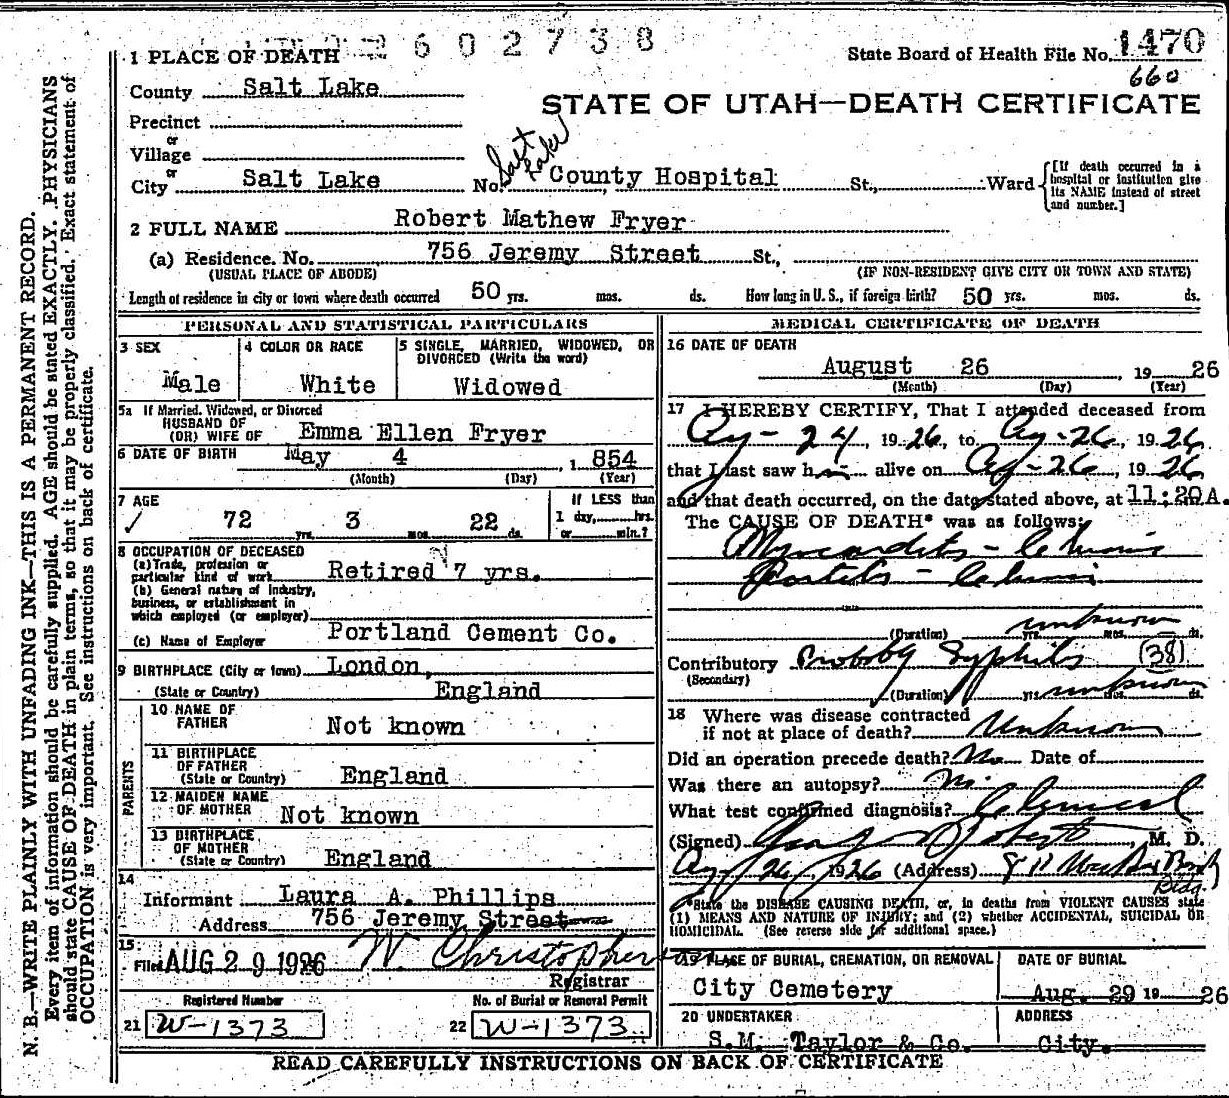 2602738
1 PLACE OF DEATH
State Board of Health File No. 1470
660
County Salt Lake
STATE OF UTAH—DEATH CERTIFICATE
Precinct
or
Village
or
City Salt Lake No. Salt Lake County Hospital St., Ward
[If death occurred in a hospital or institution give its NAME instead of street and number.]
2 FULL NAME Robert Mathew Fryer
(a) Residence. No. 756 Jeremy Street St.,
(USUAL PLACE OF ABODE) (IF NON-RESIDENT GIVE CITY OR TOWN AND STATE)
Length of residence in city or town where death occurred 50 yrs. mos. ds. How long in U. S., if foreign birth? 50 yrs. mos. ds.
PERSONAL AND STATISTICAL PARTICULARS
3 SEX
Male
4 COLOR OR RACE
White
5 SINGLE, MARRIED, WIDOWED, OR
DIVORCED (Write the word)
Widowed
5a If Married, Widowed, or Divorced
HUSBAND OF
(OR) WIFE OF Emma Ellen Fryer
6 DATE OF BIRTH May 4, 1854
(Month) (Day) (Year)
7 AGE
72 yrs. 3 mos. 22 ds.
If LESS than
1 day, hrs.
or min.?
8 OCCUPATION OF DECEASED
(a) Trade, profession or
particular kind of work Retired 7 yrs.
(b) General nature of Industry,
business, or establishment in
which employed (or employer)
(c) Name of Employer Portland Cement Co.
9 BIRTHPLACE (City or town) London,
(State or Country) England
PARENTS
10 NAME OF
FATHER Not known
11 BIRTHPLACE
OF FATHER
(State or Country) England
12 MAIDEN NAME
OF MOTHER Not known
13 BIRTHPLACE
OF MOTHER
(State or Country) England
14
Informant Laura A. Phillips
Address 756 Jeremy Street
15
Filed AUG 29 1926 W. Christopherson
Registrar
Registered Number
21 W-1373
No. of Burial or Removal Permit
22 W-1373
MEDICAL CERTIFICATE OF DEATH
16 DATE OF DEATH
August 26, 1926
(Month) (Day) (Year)
17 I HEREBY CERTIFY, That I attended deceased from
Aug-24 1926, to Aug-26, 1926
that I last saw him alive on Aug-26, 1926
and that death occurred, on the date stated above, at 11:20A.
The CAUSE OF DEATH* was as follows:
Myocarditis - Chronic
- Chronic
(Duration) unknown yrs. mos. ds.
Contributory Probably Syphilis (38)
(Secondary)
(Duration) yrs. unknown ds.
18 Where was disease contracted
if not at place of death? Unknown
Did an operation precede death? No Date of
Was there an autopsy? No.
What test confirmed diagnosis? Clinical
(Signed) Roberts, M. D.
Aug 26, 1926 (Address)
Bldg.
*State the DISEASE CAUSING DEATH, or, in deaths from VIOLENT CAUSES state
(1) MEANS AND NATURE OF INJURY; and (2) whether ACCIDENTAL, SUICIDAL OR
HOMICIDAL. (See reverse side for additional space.)
19 PLACE OF BURIAL, CREMATION, OR REMOVAL
City Cemetery
DATE OF BURIAL
Aug. 29 1926
20 UNDERTAKER
S.M. Taylor & Co.
ADDRESS
City.
READ CAREFULLY INSTRUCTIONS ON BACK OF CERTIFICATE
N. B.—WRITE PLAINLY WITH UNFADING INK—THIS IS A PERMANENT RECORD.
Every item of information should be carefully supplied. AGE should be stated EXACTLY. PHYSICIANS
should state CAUSE OF DEATH in plain terms, so that it may be properly classified. Exact statement of
OCCUPATION is very important. See instructions on back of certificate.